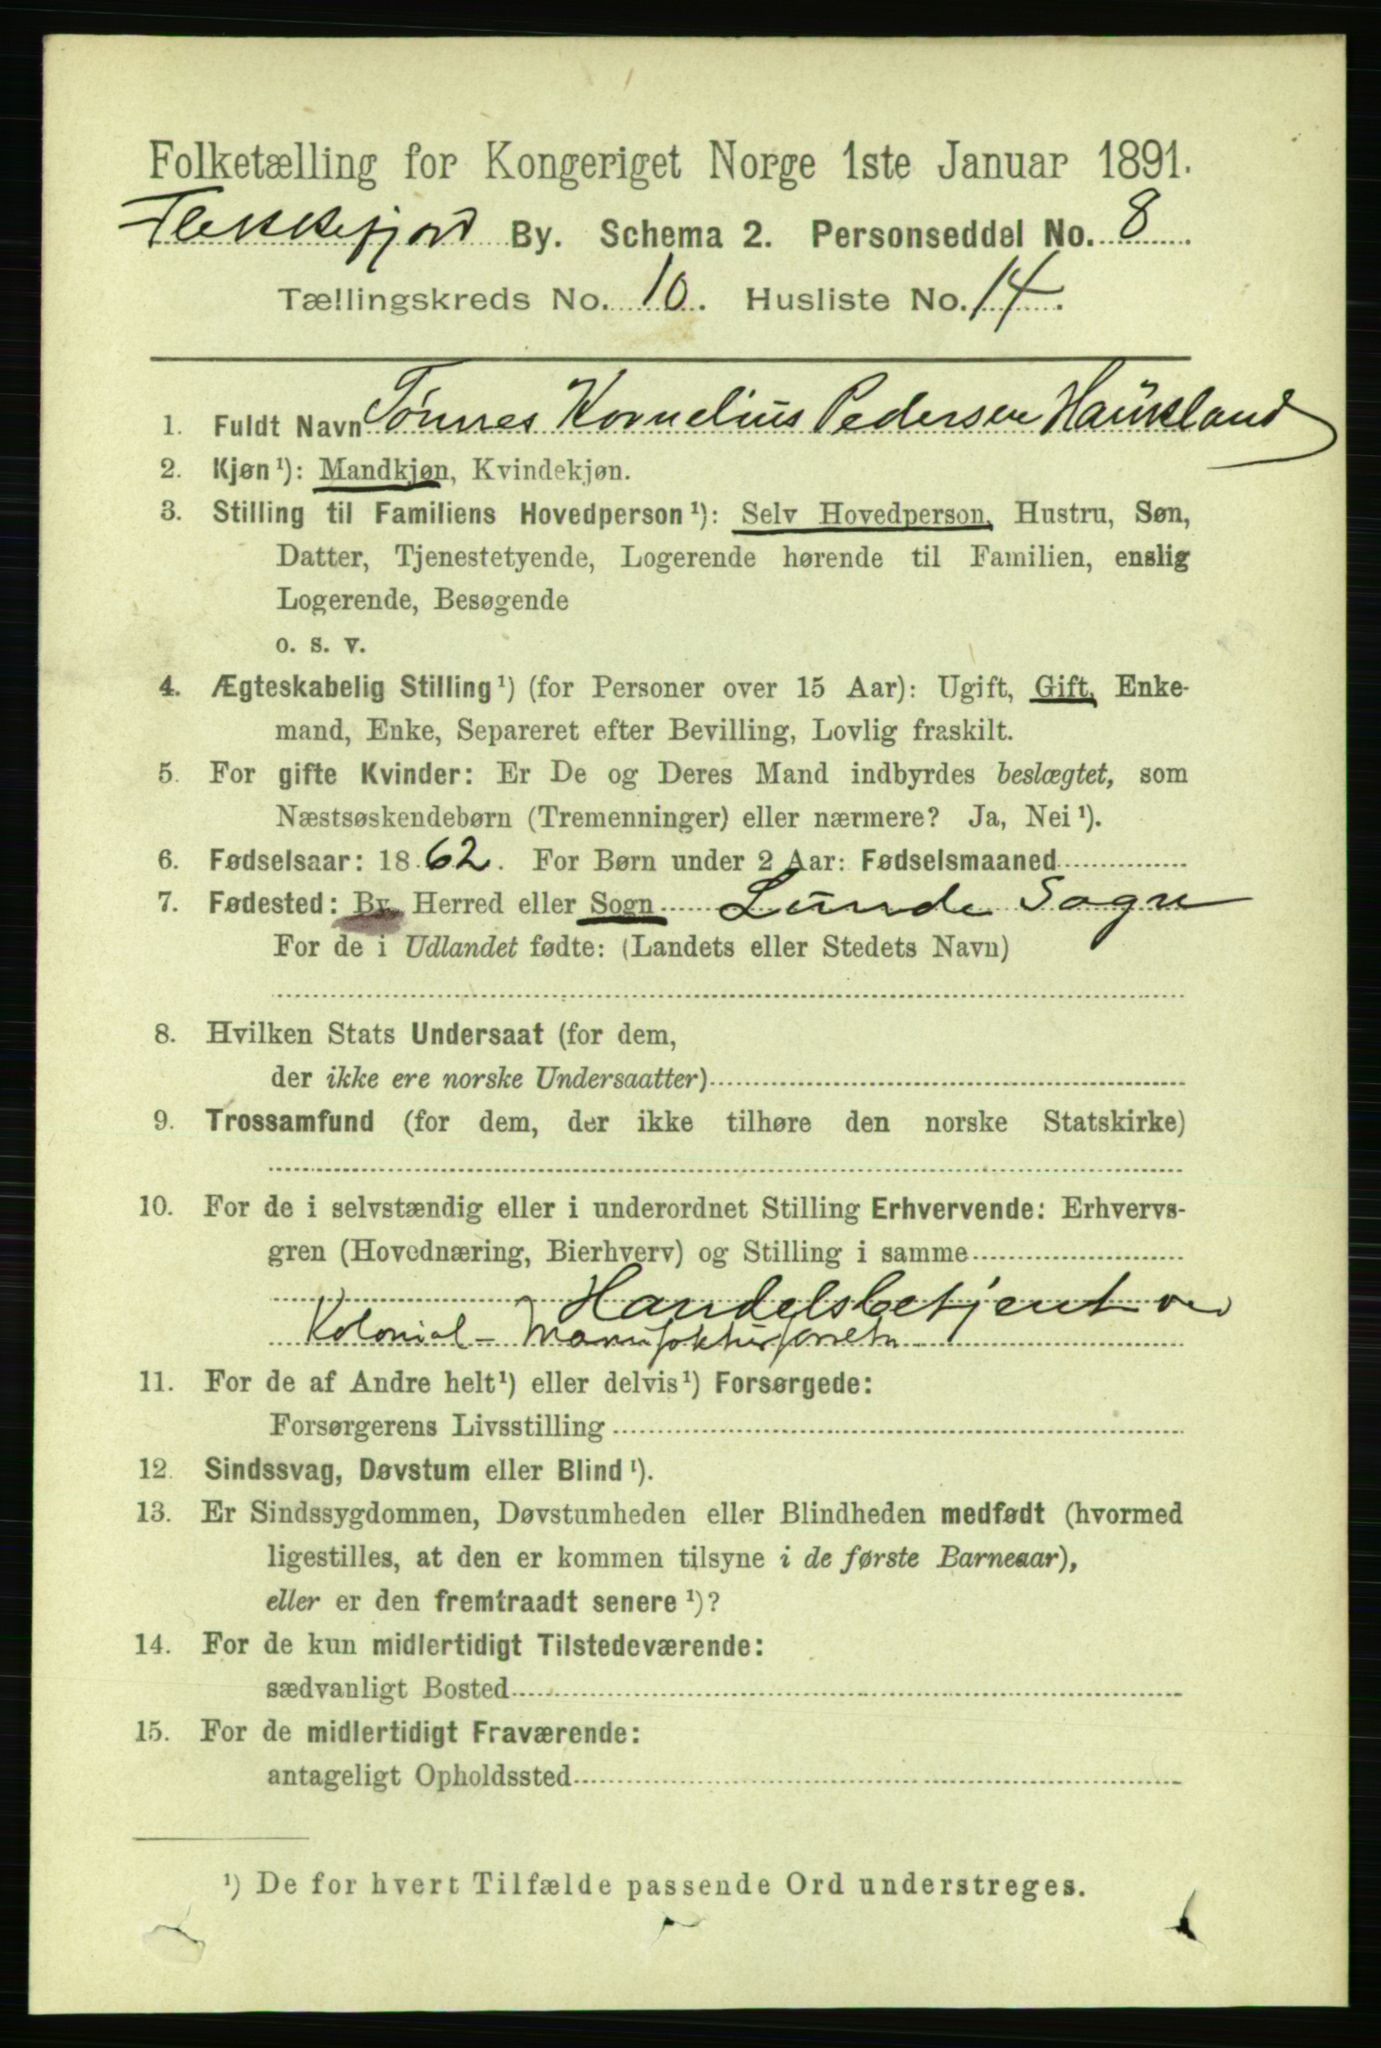 Folketælling for Kongeriget Norge 1ste Januar 1891.
Flekkefjord By. Schema 2. Personseddel No. 8
Tællingskreds No. 10. Husliste No. 14.
1. Fuldt Navn Tønnes Kornelius Pedersen Haüsland
2. Kjøn¹): Mandkjøn, Kvindekjøn.
3. Stilling til Familiens Hovedperson¹): Selv Hovedperson, Hustru, Søn,
Datter, Tjenestetyende, Logerende hørende til Familien, enslig
Logerende, Besøgende
o. s. v.
4. Ægteskabelig Stilling¹) (for Personer over 15 Aar): Ugift, Gift, Enke-
mand, Enke, Separeret efter Bevilling, Lovlig fraskilt.
5. For gifte Kvinder: Er De og Deres Mand indbyrdes beslægtet, som
Næstsøskendebørn (Tremenninger) eller nærmere? Ja, Nei¹).
6. Fødselsaar: 1862. For Børn under 2 Aar: Fødselsmaaned
7. Fødested: By, Herred eller Sogn Lunde Sogn
For de i Udlandet fødte: (Landets eller Stedets Navn)
8. Hvilken Stats Undersaat (for dem,
der ikke ere norske Undersaatter)
9. Trossamfund (for dem, der ikke tilhøre den norske Statskirke)
10. For de i selvstændig eller i underordnet Stilling Erhvervende: Erhvervs-
gren (Hovednæring, Bierhverv) og Stilling i samme
Handelsbetjent ved
Kolonial-Manufakturforretn
11. For de af Andre helt¹) eller delvis¹) Forsørgede:
Forsørgerens Livsstilling
12. Sindssvag, Døvstum eller Blind¹).
13. Er Sindssygdommen, Døvstumheden eller Blindheden medfødt (hvormed
ligestilles, at den er kommen tilsyne i de første Barneaar),
eller er den fremtraadt senere¹)?
14. For de kun midlertidigt Tilstedeværende:
sædvanligt Bosted
15. For de midlertidigt Fraværende:
antageligt Opholdssted
¹) De for hvert Tilfælde passende Ord understreges.